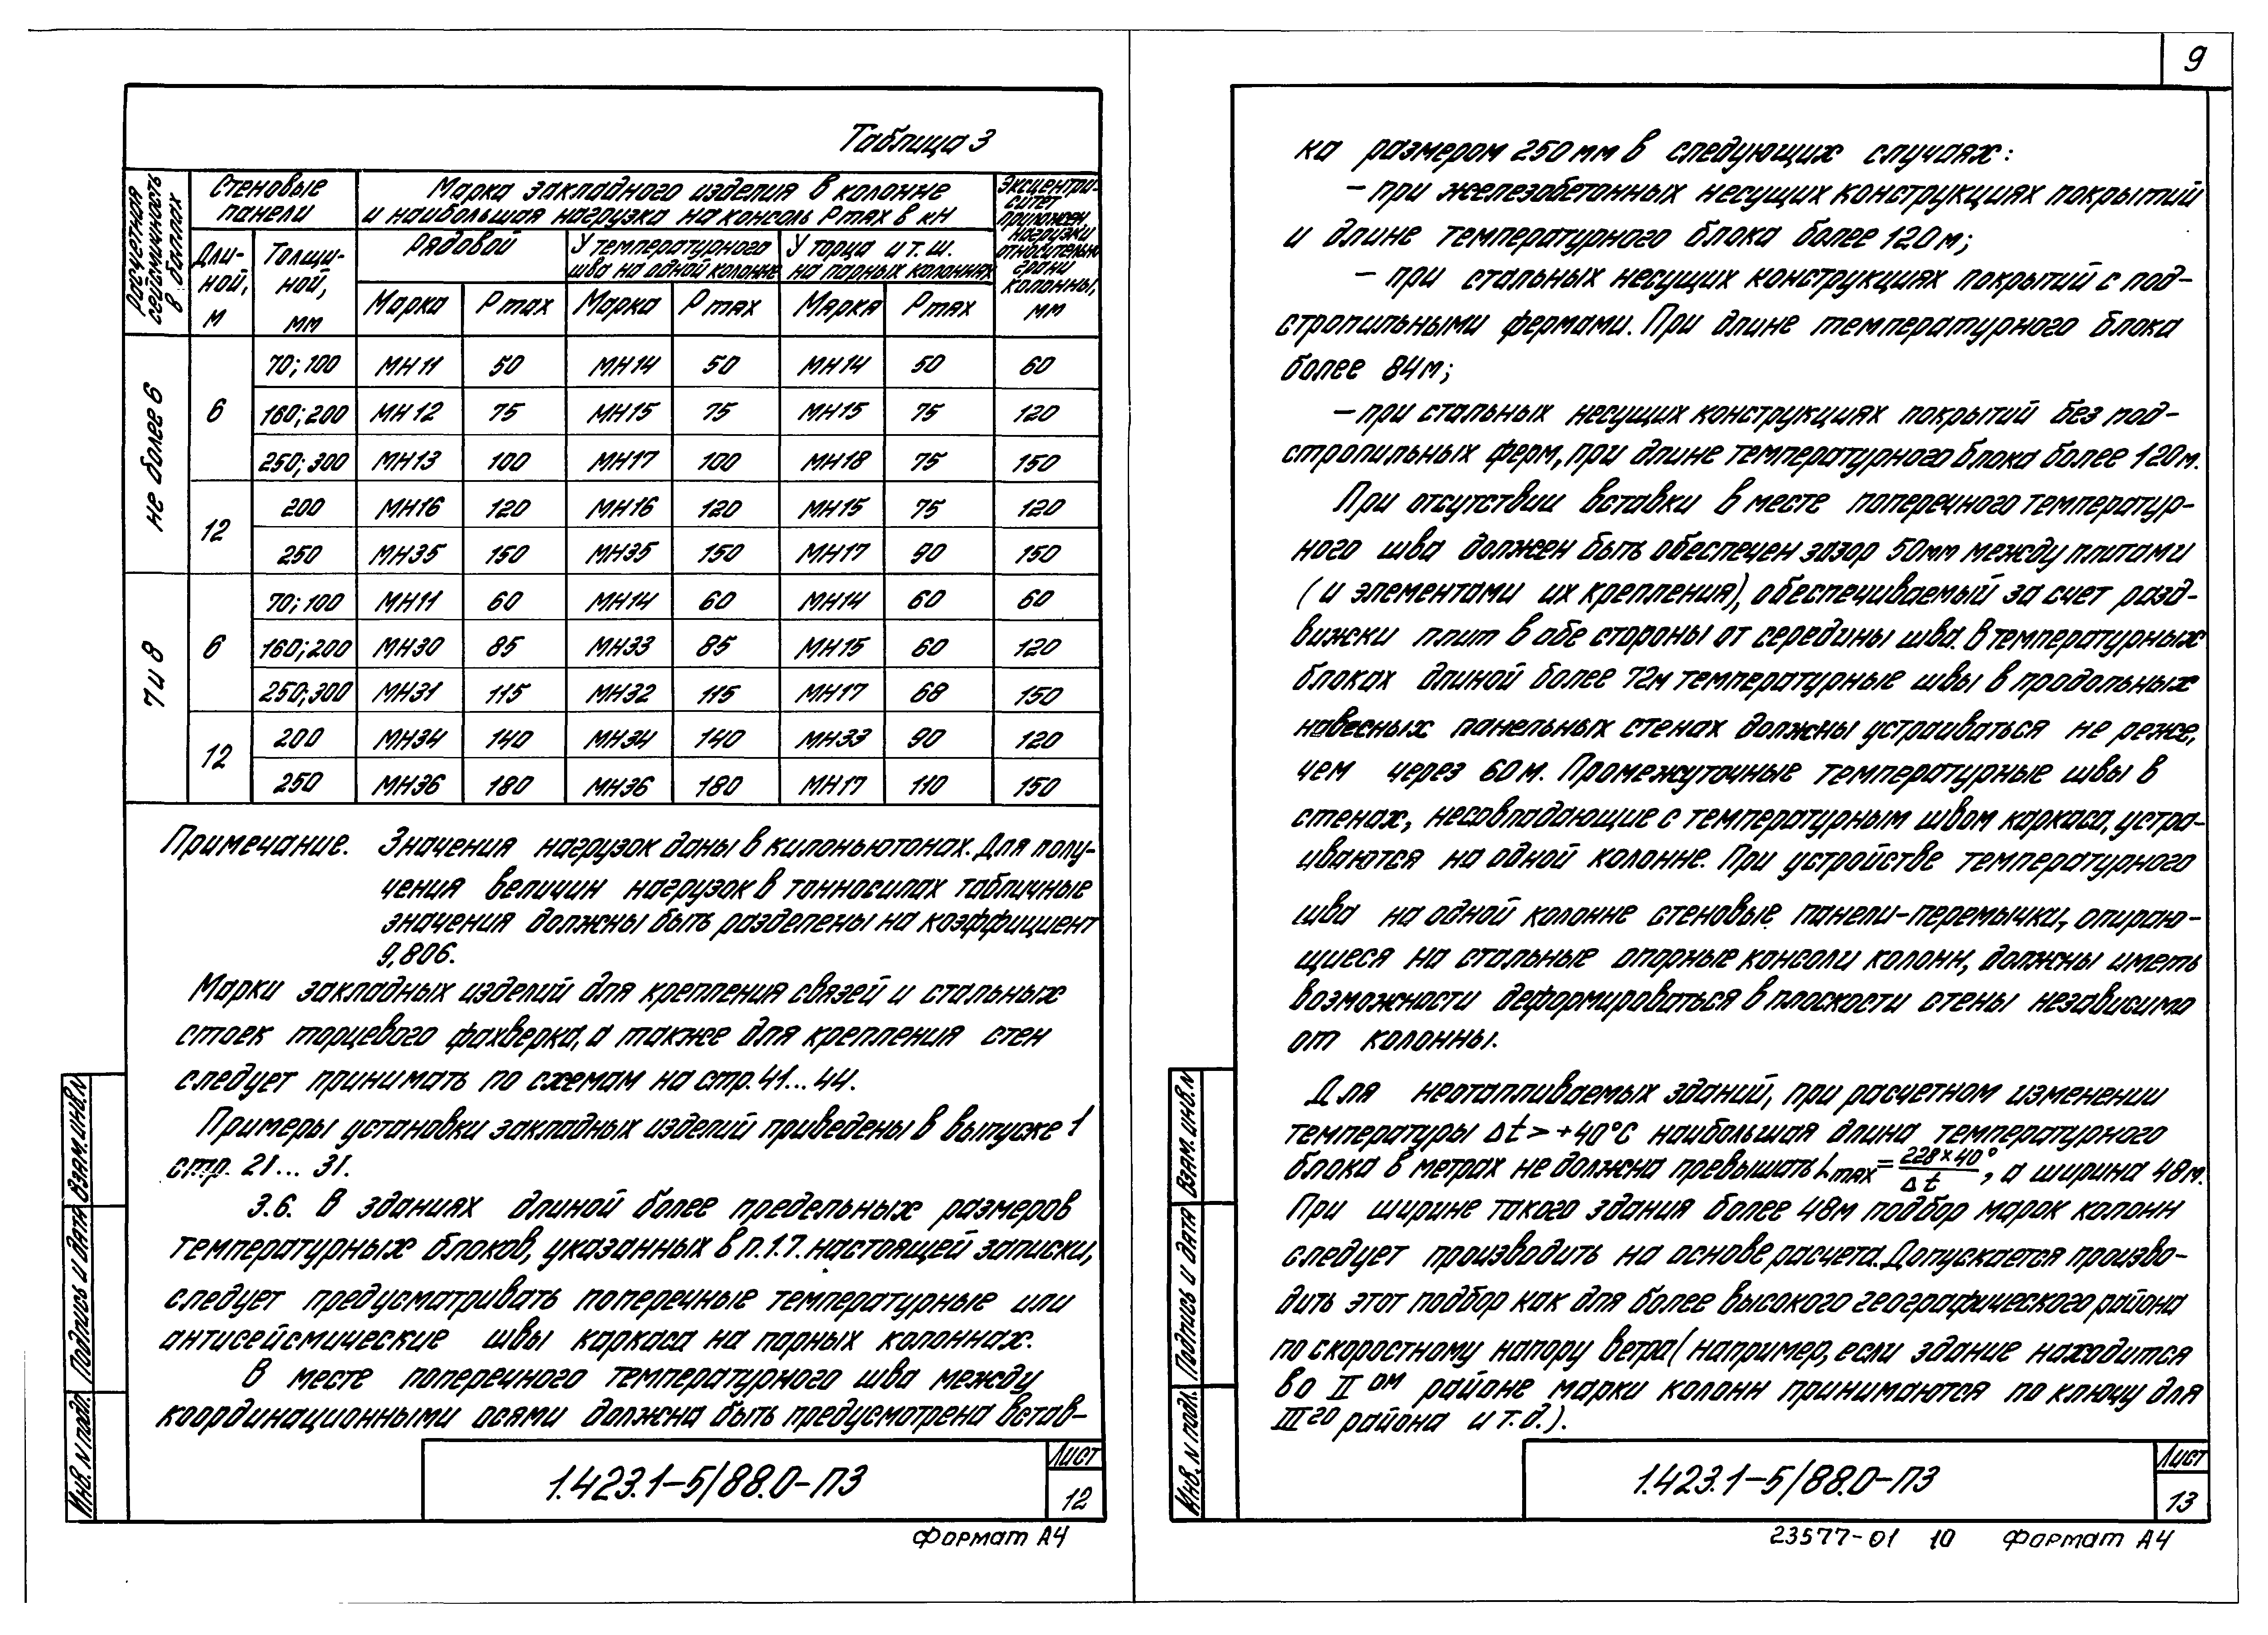 Таблица 3
Расчетная сейсмичность в баллах
Стеновые панели
Марка закладного изделия в колонне и наибольшая нагрузка на консоль Pmax в кН
Эксцентриситет приложен. нагрузки относительно грани колонны, мм
Длиной, м
Толщиной, мм
Рядовой
У температурного шва на одной колонне
У торца и т.ш. на парных колоннах
Марка Pmax Марка Pmax Марка Pmax
не более 6
6
70; 100 МН11 50 МН14 50 МН14 50 60
160; 200 МН12 75 МН15 75 МН15 75 120
250; 300 МН13 100 МН17 100 МН18 75 150
12
200 МН16 120 МН16 120 МН15 75 120
250 МН35 150 МН35 150 МН17 90 150
7 и 8
6
70; 100 МН11 60 МН14 60 МН14 60 60
160; 200 МН30 85 МН33 85 МН15 60 120
250; 300 МН31 115 МН32 115 МН17 68 150
12
200 МН34 140 МН34 140 МН33 90 120
250 МН36 180 МН36 180 МН17 110 150
Примечание. Значения нагрузок даны в килоньютонах. Для полу-
чения величин нагрузок в тонносилах табличные
значения должны быть разделены на коэффициент
9,806.
Марки закладных изделий для крепления связей и стальных
стоек торцевого фахверка, а также для крепления стен
следует принимать по схемам на стр. 41... 44.
Примеры установки закладных изделий приведены в выпуске 1
стр. 21... 31.
3.6. В зданиях длиной более предельных размеров
температурных блоков, указанных в п.1.7. настоящей записки,
следует предусматривать поперечные температурные или
антисейсмические швы каркаса на парных колоннах.
В месте поперечного температурного шва между
координационными осями должна быть предусмотрена встав-
Взам. инв. N
Подпись и дата
Инв. N подл.
1.423.1-5/88.0-ПЗ
Лист
12
Формат А4
9
ка размером 250 мм в следующих случаях:
- при железобетонных несущих конструкциях покрытий
и длине температурного блока более 120 м;
- при стальных несущих конструкциях покрытий с под-
стропильными фермами. При длине температурного блока
более 84 м;
- при стальных несущих конструкциях покрытий без под-
стропильных ферм, при длине температурного блока более 120 м.
При отсутствии вставки в месте поперечного температур-
ного шва должен быть обеспечен зазор 50 мм между плитами
(и элементами их крепления), обеспечиваемый за счет разд-
вижки плит в обе стороны от середины шва. В температурных
блоках длиной более 72 м температурные швы в продольных
навесных панельных стенах должны устраиваться не реже,
чем через 60 м. Промежуточные температурные швы в
стенах, несовпадающие с температурным швом каркаса, устра-
иваются на одной колонне. При устройстве температурного
шва на одной колонне стеновые панели-перемычки, опираю-
щиеся на стальные опорные консоли колонн, должны иметь
возможности деформироваться в плоскости стены независимо
от колонны.
Для неотапливаемых зданий, при расчетном изменении
температуры Δt > +40°С наибольшая длина температурного
блока в метрах не должна превышать Lmax = 228×40° / Δt, а ширина 48 м.
При ширине такого здания более 48 м подбор марок колонн
следует производить на основе расчета. Допускается произво-
дить этот подбор как для более высокого географического района
по скоростному напору ветра (например, если здание находится
во II ом районе марки колонн принимаются по ключу для
III го района и т.д.).
Взам. инв. N
Подпись и дата
Инв. N подл.
1.423.1-5/88.0-ПЗ
Лист
13
23577-01 10 Формат А4